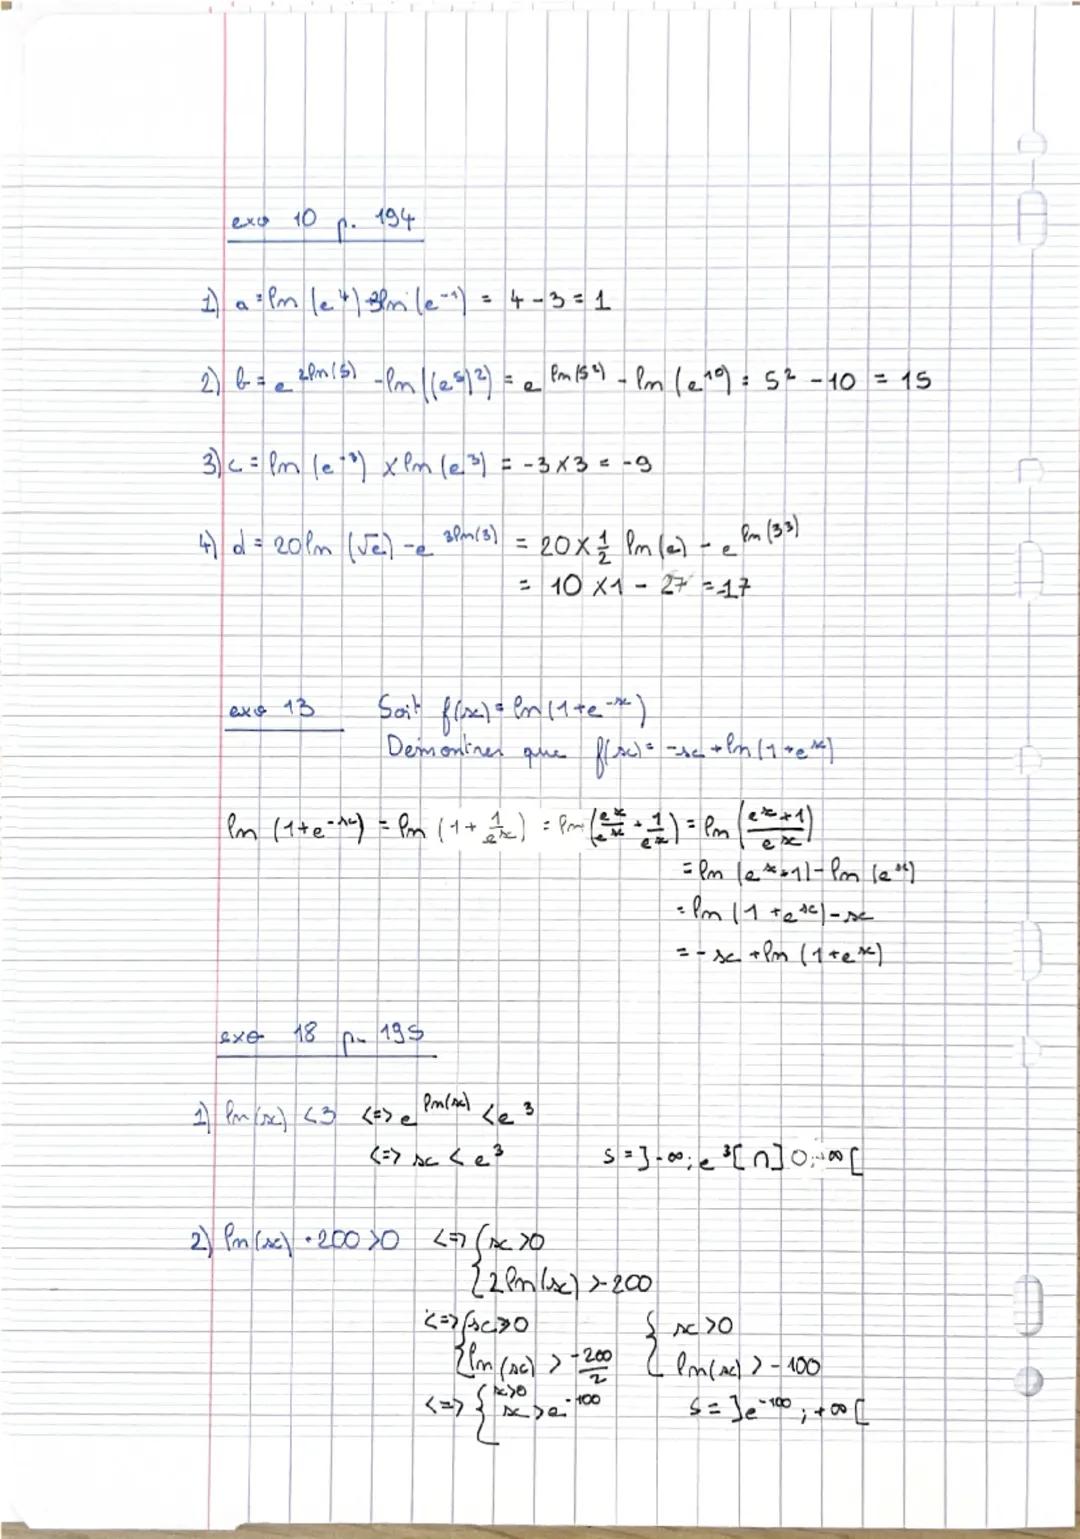 exo 10 p. 194
1) a = ln(e⁴) + 3ln(e⁻¹) = 4 - 3 = 1
2) b = e^(2ln(5)) - ln((e⁵)²) = e^(ln(5²)) - ln(e¹⁰) = 5² - 10 = 15
3) c = ln(e⁻³) × ln(e³) = -3×3 = -9
4) d = 20ln(√e) - e^(3ln(3)) = 20×1/2 ln(e) - e^(ln(3³))
= 10×1 - 27 = -17
exo 13 Soit f(x) = ln(1+e^(-x))
Démontrer que f(x) = -x + ln(1+e^x)
ln(1+e^(-x)) = ln(1 + 1/e^x) = ln(e^x/e^x + 1/e^x) = ln((e^x+1)/e^x)
= ln(e^x+1) - ln(e^x)
= ln(1+e^x) - x
= -x + ln(1+e^x)
exo 18 p. 195
1) ln(x) < 3 <=> e^(ln(x)) < e³
<=> x < e³ S = ]-∞; e³[ ∩ ]0; +∞[
2) ln(x) + 200 > 0 <=> { x > 0
{ 2ln(x) > -200
<=> { x > 0 { x > 0
{ ln(x) > -200/2 { ln(x) > -100
<=> { x > 0
x > e⁻¹⁰⁰ S = ]e⁻¹⁰⁰; +∞[